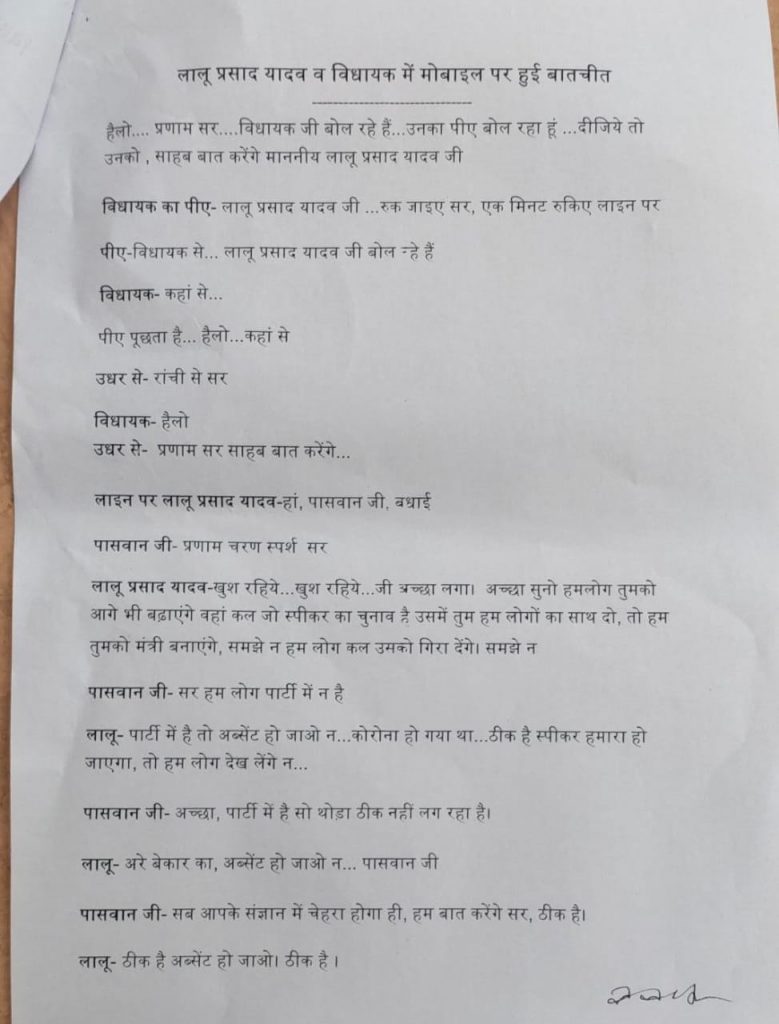 लालू प्रसाद यादव व विधायक में मोबाइल पर हुई बातचीत
------------------------------
हैलो.... प्रणाम सर....विधायक जी बोल रहे हैं...उनका पीए बोल रहा हूं ...दीजिये तो
उनको , साहब बात करेंगे माननीय लालू प्रसाद यादव जी
विधायक का पीए- लालू प्रसाद यादव जी ...रुक जाइए सर, एक मिनट रुकिए लाइन पर
पीए-विधायक से... लालू प्रसाद यादव जी बोल रहे हैं
विधायक- कहां से...
पीए पूछता है... हैलो...कहां से
उधर से- रांची से सर
विधायक- हैलो
उधर से- प्रणाम सर साहब बात करेंगे...
लाइन पर लालू प्रसाद यादव-हां, पासवान जी, बधाई
पासवान जी- प्रणाम चरण स्पर्श सर
लालू प्रसाद यादव-खुश रहिये...खुश रहिये...जी अच्छा लगा। अच्छा सुनो हमलोग तुमको
आगे भी बढ़ाएंगे वहां कल जो स्पीकर का चुनाव है उसमें तुम हम लोगों का साथ दो, तो हम
तुमको मंत्री बनाएंगे, समझे न हम लोग कल उमको गिरा देंगे। समझे न
पासवान जी- सर हम लोग पार्टी में न है
लालू- पार्टी में है तो अब्सेंट हो जाओ न...कोरोना हो गया था...ठीक है स्पीकर हमारा हो
जाएगा, तो हम लोग देख लेंगे न...
पासवान जी- अच्छा, पार्टी में है सो थोड़ा ठीक नहीं लग रहा है।
लालू- अरे बेकार का, अब्सेंट हो जाओ न... पासवान जी
पासवान जी- सब आपके संज्ञान में चेहरा होगा ही, हम बात करेंगे सर, ठीक है।
लालू- ठीक है अब्सेंट हो जाओ। ठीक है ।